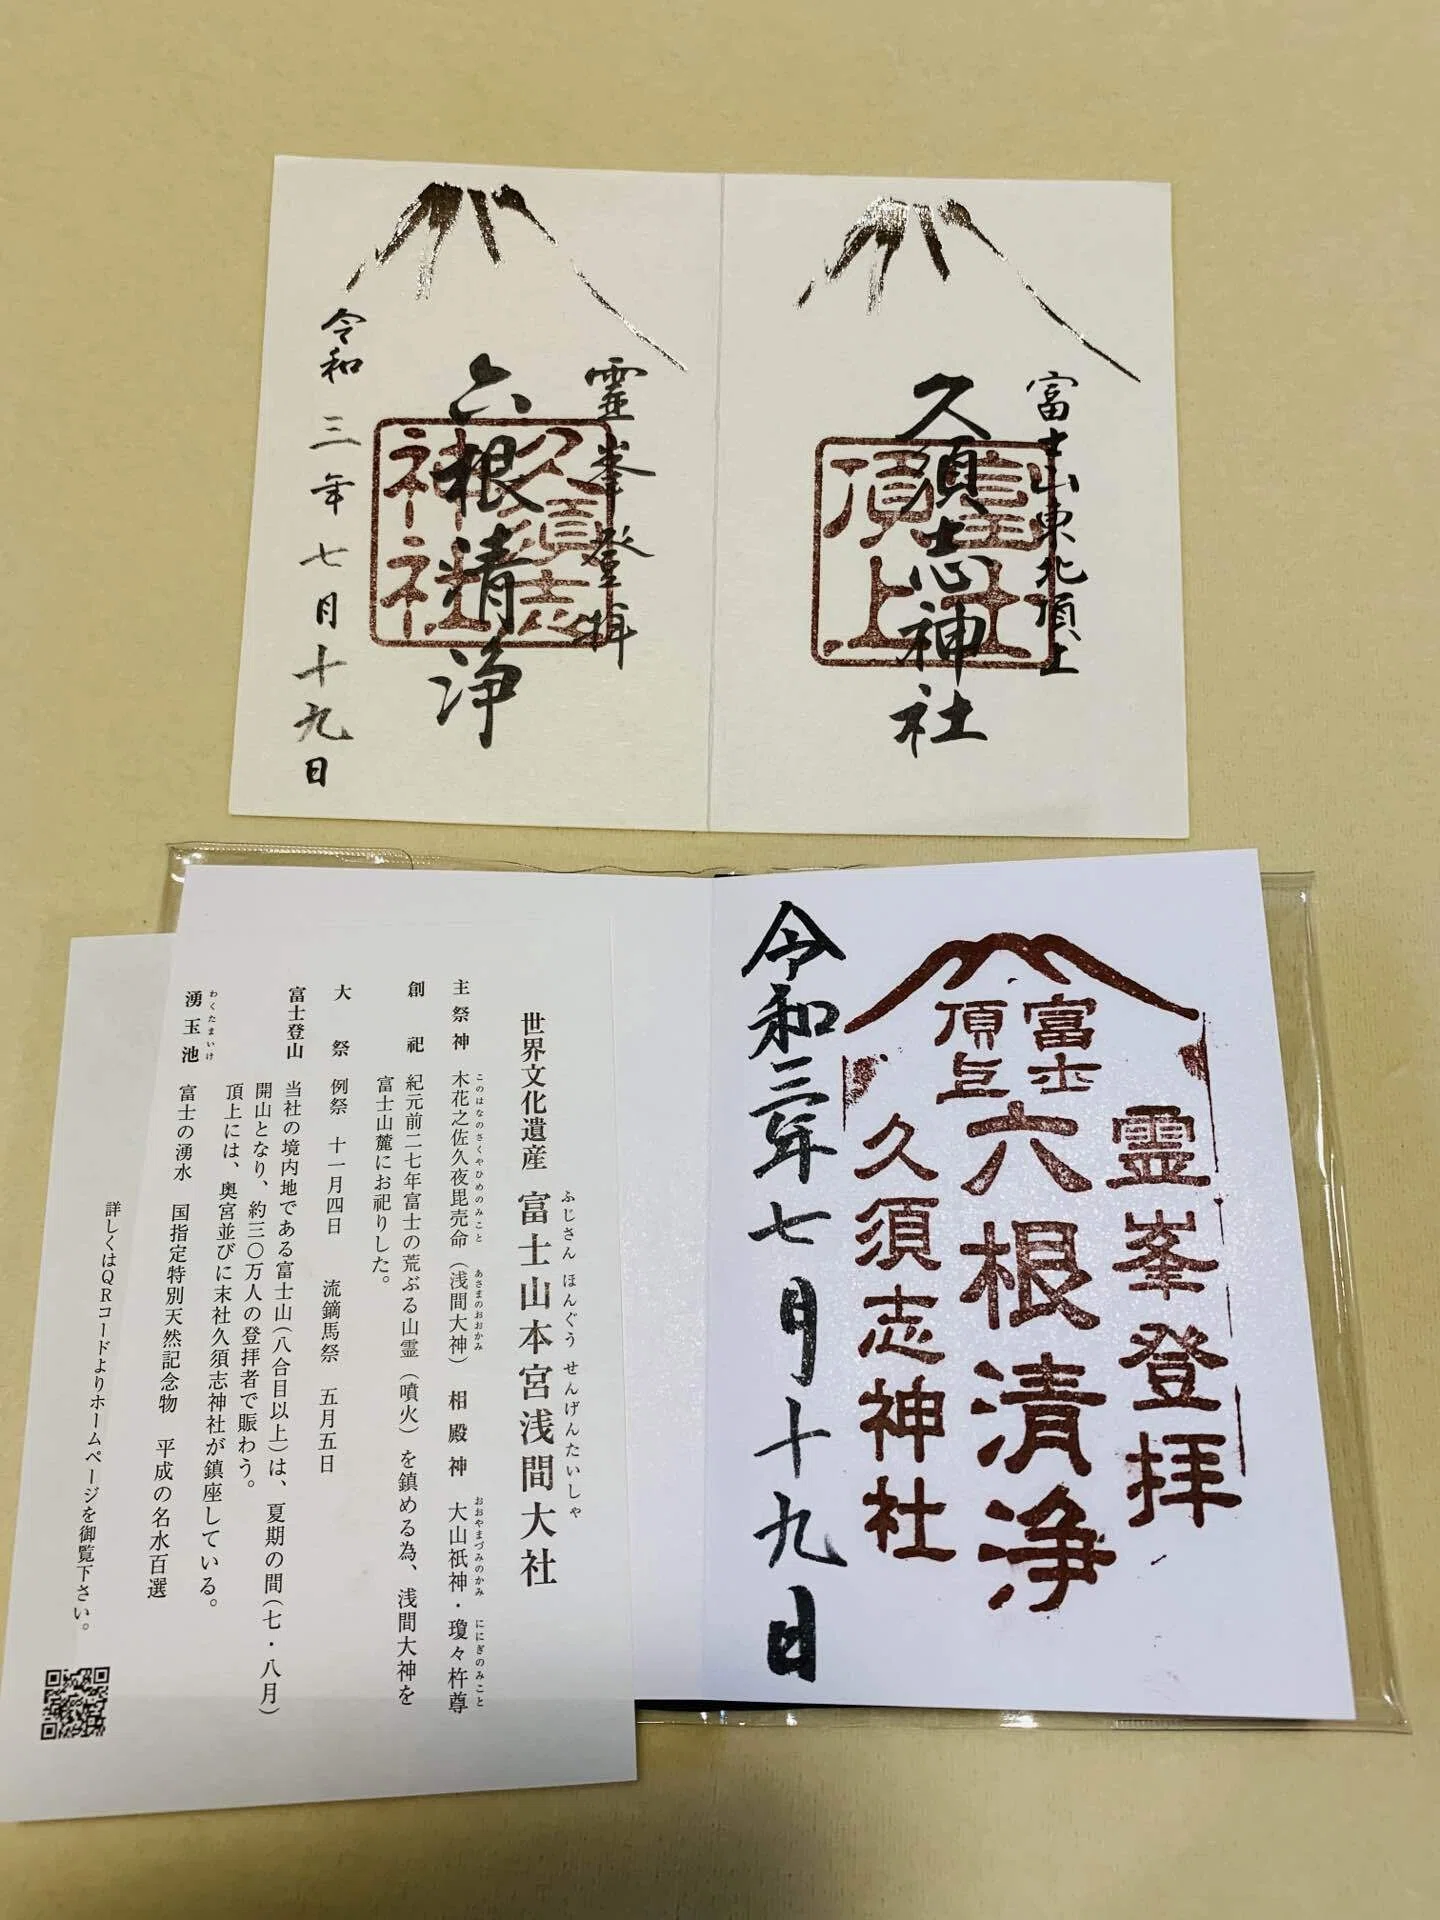 富士山東北頂上
久須志神社
頂上
霊峯登拝
六根清浄
久須志
神社
令和三年七月十九日
富士
頂上
霊峯登拝
六根清浄
久須志神社
令和三年七月十九日
世界文化遺産 富士山本宮浅間大社
ふじさん ほんぐう せんげんたいしゃ
主祭神 木花之佐久夜毘売命(浅間大神) 相殿神 大山祇神・瓊々杵尊
このはなのさくやひめのみこと あさまのおおかみ おおやまづみのかみ ににぎのみこと
創祀 紀元前二七年富士の荒ぶる山霊(噴火)を鎮める為、浅間大神を
富士山麓にお祀りした。
大祭 例祭 十一月四日 流鏑馬祭 五月五日
富士登山 当社の境内地である富士山(八合目以上)は、夏期の間(七・八月)
開山となり、約三〇万人の登拝者で賑わう。
頂上には、奥宮並びに末社久須志神社が鎮座している。
わくたまいけ
湧玉池 富士の湧水 国指定特別天然記念物 平成の名水百選
詳しくはQRコードよりホームページを御覧下さい。